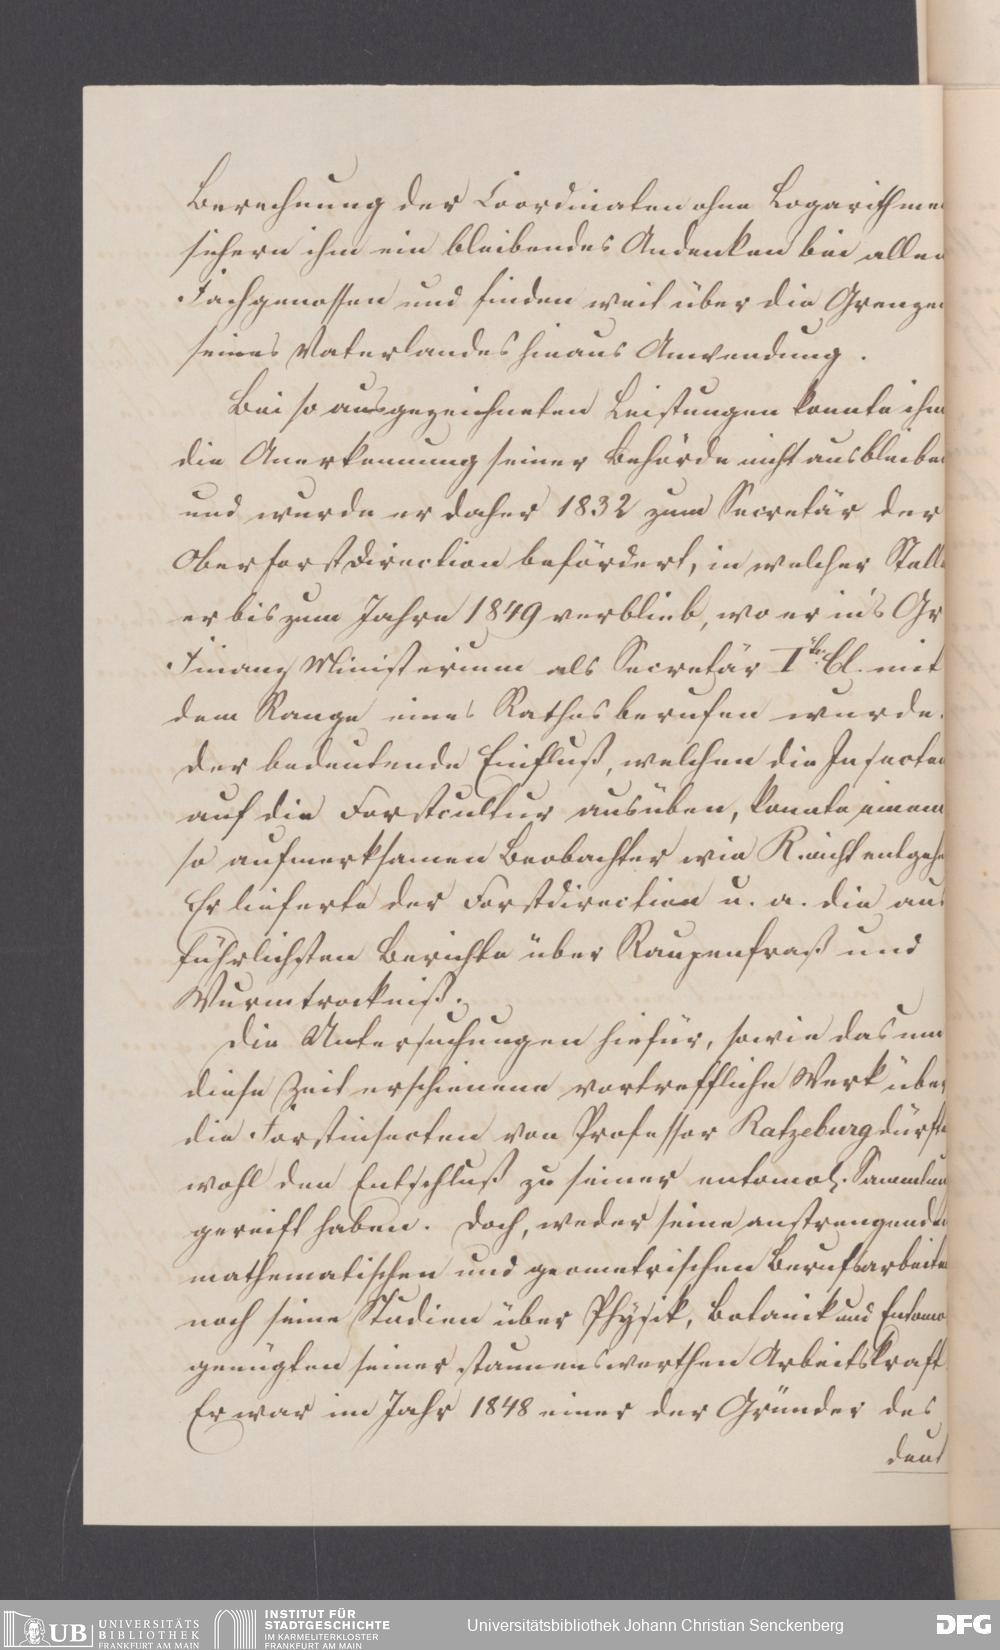 Berechnung der Coordinaten ohne Logarithmen
sichern ihm ein bleibendes Andenken bei allen
Fachgenossen und finden weit über die Grenzen
seines Vaterlandes hinaus Anwendung.
Bei so ausgezeichneten Leistungen konnte ihm
die Anerkennung seiner Behörde nicht ausbleiben
und wurde er daher 1832 zum Secretär der
Oberforstdirection befördert, in welcher Stelle
er bis zum Jahre 1849 verblieb, wo er in's Gr
Finanz Ministerium als Secretär Iter Cl. mit
dem Range eines Rathes berufen wurde.
Der bedeutende Einfluß, welchen die Insecten
auf die Forstcultur ausüben, konnte einem
so aufmerksamen Beobachter wie K. nicht entgehe
Er lieferte der Forstdirection u. a. die aus
führlichsten Berichte über Raupenfraß und
Wurmtrockniß.
Die Untersuchungen hiefür, sowie das um
diese Zeit erschienene vortreffliche Werk über
die Forstinsecten von Professor Ratzeburg dürfte
wohl den Entschluß zu seiner entomol. Sammlun
gereift haben. Doch, weder seine anstrengenden
mathematischen und geometrischen Berufsarbeiten
noch seine Studien über Physik, Botanik und Entomo
genügten seiner staunenswerthen Arbeitskraft
Er war im Jahr 1848 einer der Gründer des
deut
UB UNIVERSITÄTS
BIBLIOTHEK
FRANKFURT AM MAIN
INSTITUT FÜR
STADTGESCHICHTE
IM KARMELITERKLOSTER
FRANKFURT AM MAIN
Universitätsbibliothek Johann Christian Senckenberg
DFG